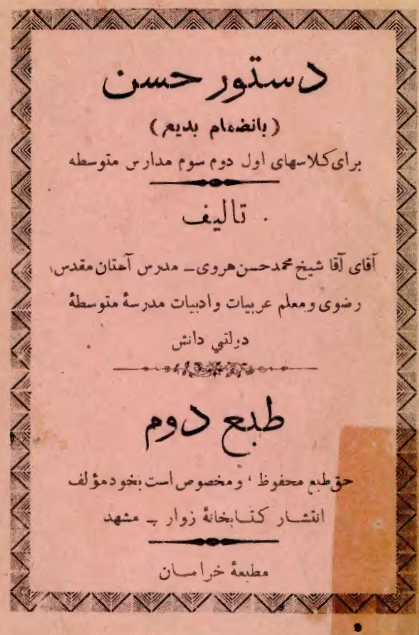 دستور حسن
(بانضمام بدیع)
برای کلاسهای اول دوم سوم مدارس متوسطه
تالیف
آقای آقا شیخ محمد حسن هروی ـ مدرس آستان مقدس
رضوی و معلم عربیات و ادبیات مدرسهٔ متوسطهٔ
دولتی دانش
طبع دوم
حق طبع محفوظ، و مخصوص است بخود مؤلف
انتشار کتابخانهٔ زوار ـ مشهد
مطبعهٔ خراسان